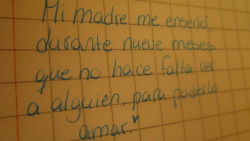 Mi madre me enseñó,
durante nueve meses
que no hace falta ver
a alguien, para poderlo
amar."